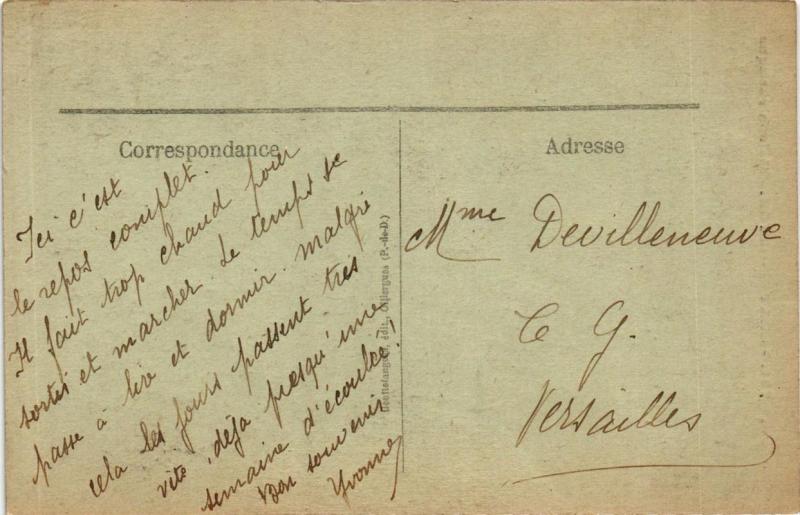 Correspondance
Ici c'est
le repos complet.
Il fait trop chaud pour
sortir et marcher. Le temps se
passe à lire et dormir. malgré
cela les jours passent très
vite, déja presqu'une
semaine d'écoulée!
Bon souvenir
Yvonne
édit., Gillergues (P.-de-D.)
Adresse
Mme Devilleneuve
C G.
Versailles